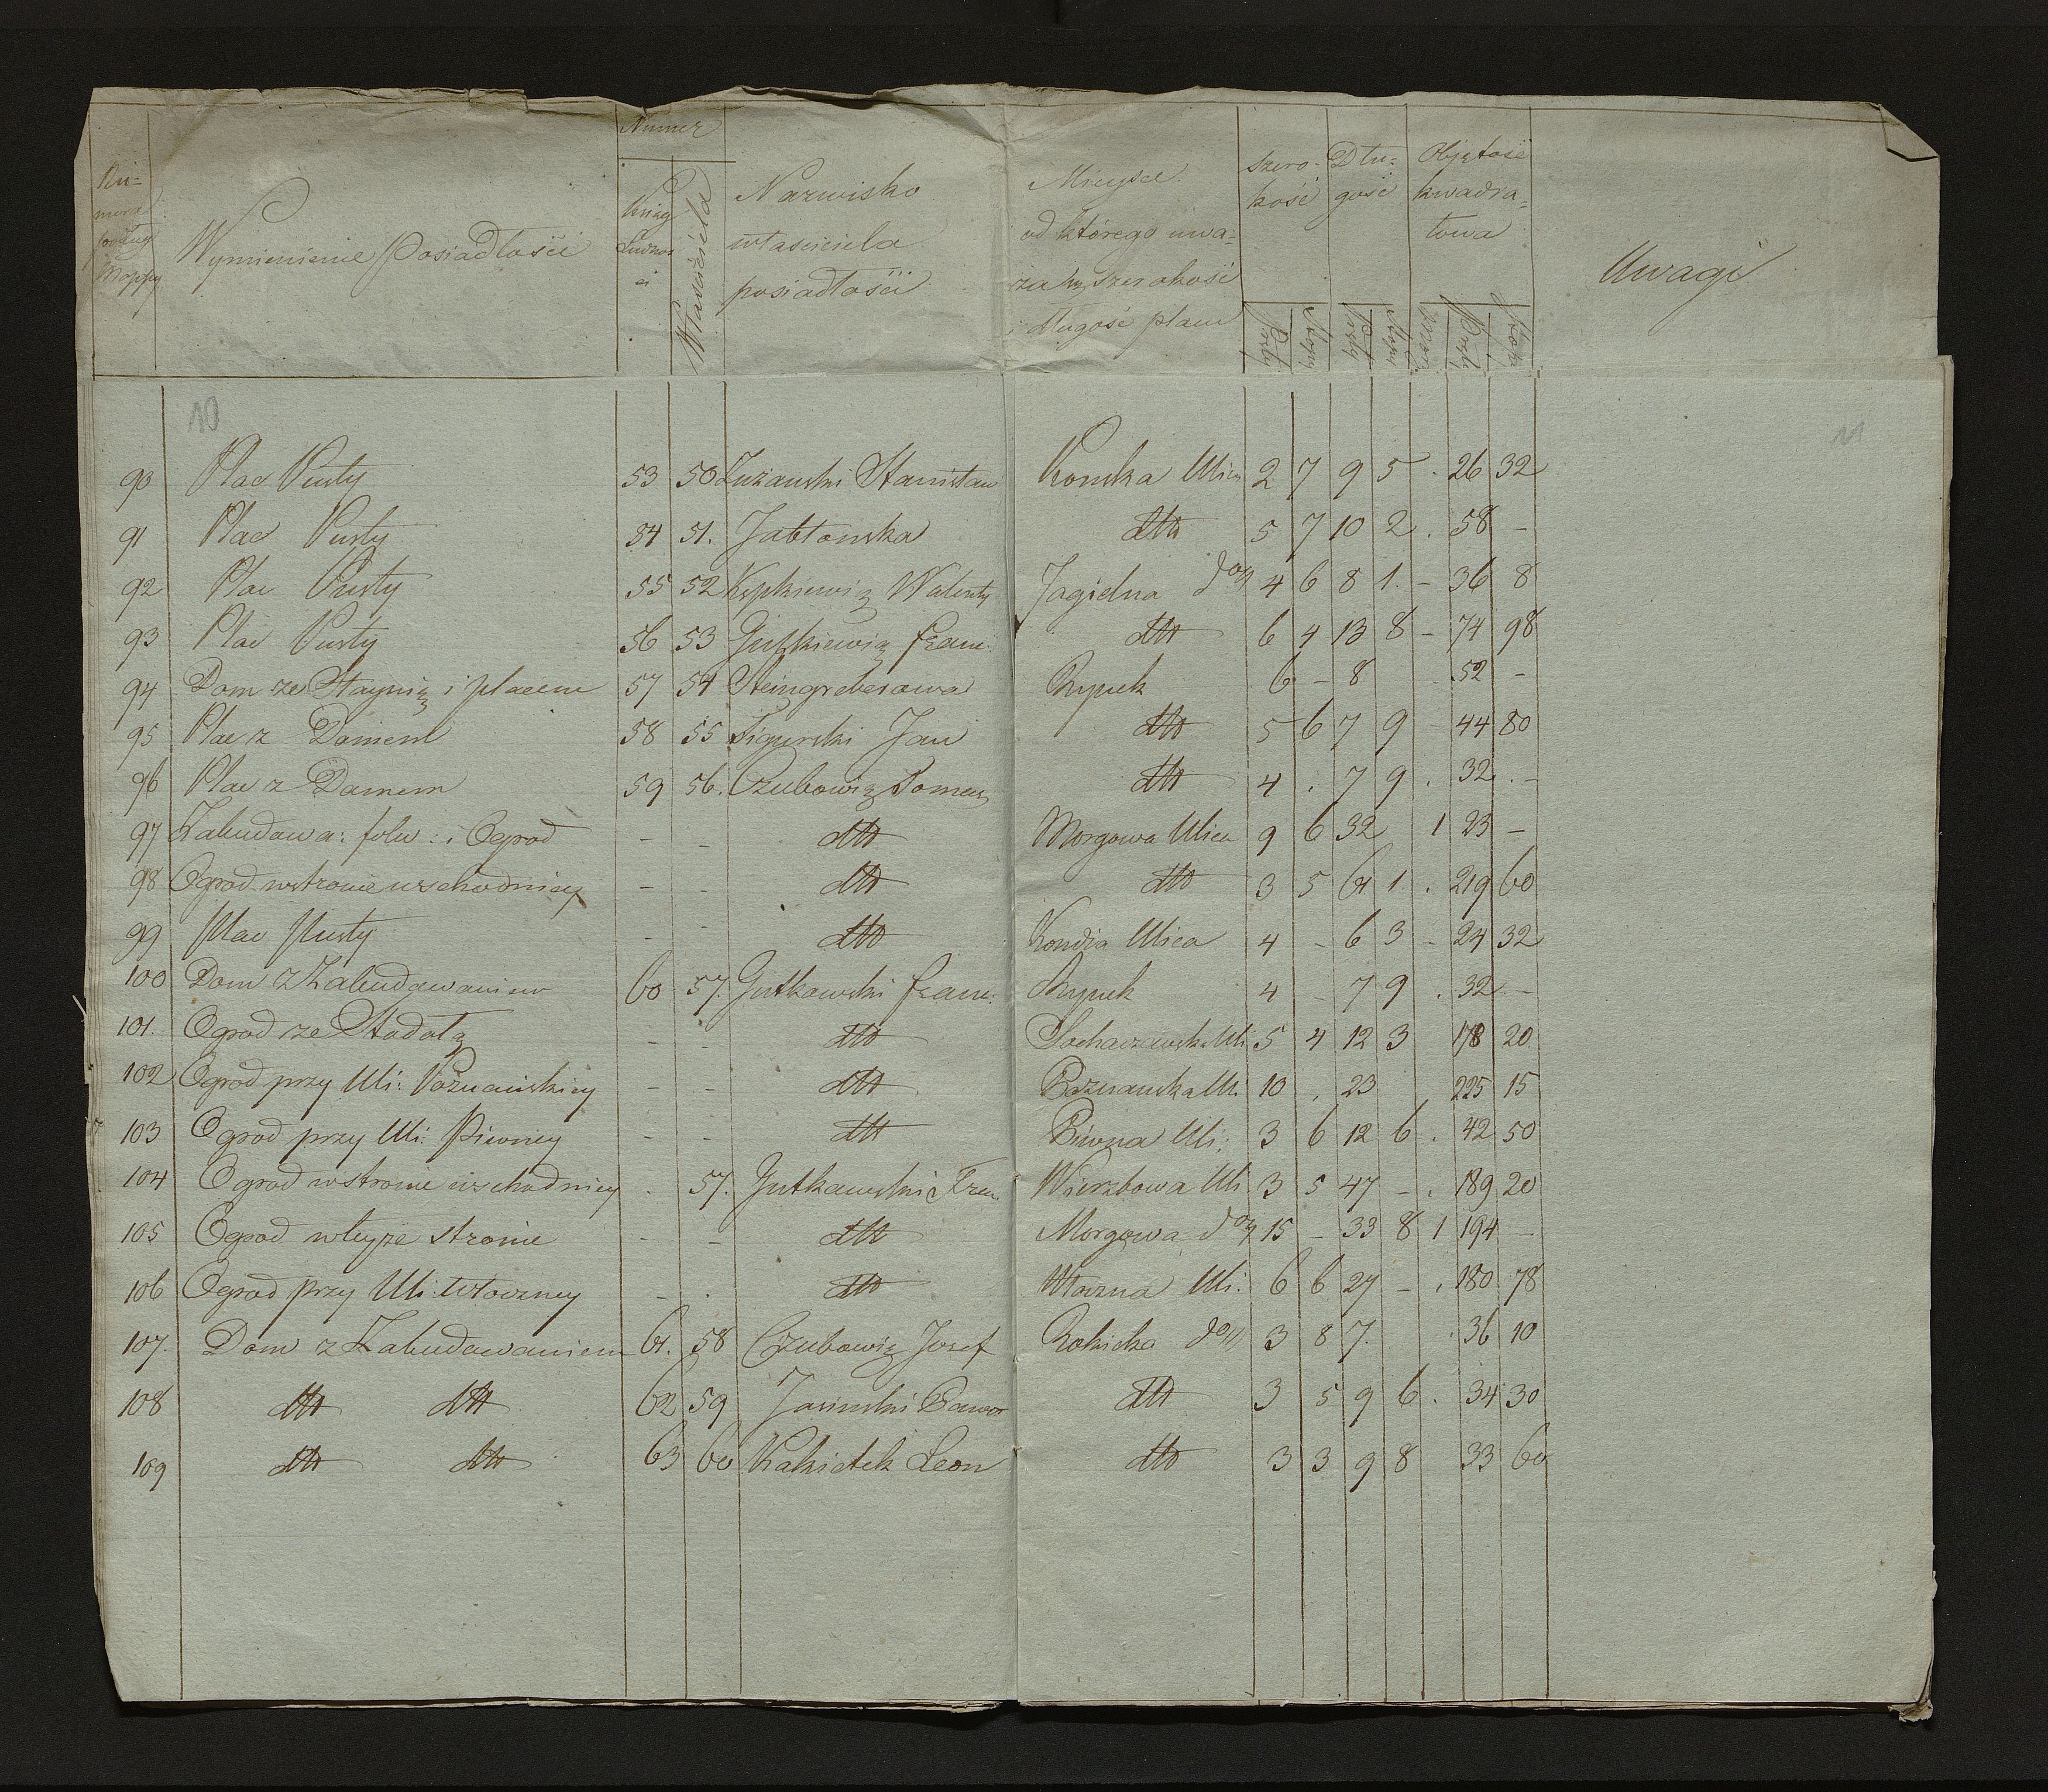 Nu=
mera
podług
Mappy
Wymienienie Posiadłości
Numer
Księg
Ludnoś
ci
Właściciela
Nazwisko
właściciela
posiadłości
Mieysce
od którego uwa=
żahy szerokość
i długość placu
Szero=
kość
Dłu=
gość
Objętość
kwadra=
towa
Uwagi
Pręty Stopy Pręty Stopy Morgi Pręty Stopy
10 11
90 Plac Pusty 53 50 Luzanski Stanisław Konska Ulica 2 7 9 5 . 26 32
91 Plac Pusty 54 51. Jabłonska dtto 5 7 10 2 . 58 -
92 Plac Pusty 55 52 Kępkiewicz Walenty Jagielna dog 4 6 8 1. - 36 8
93 Plac Pusty 56 53 Gutkiewicz Franc: dtto 6 4 13 8 - 74 98
94 Dom ze Staynią i placem 57 54 Steingreberowa Rynek 6 - 8 . 52 -
95 Plac z Domem 58 55 Figurski Jan dtto 5 6 7 9 - 44 80
96 Plac z Domem 59 56. Czubowicz Tomasz dtto 4 . 7 9 . 32 . -
97 Zabudowa: folw: i Ogrod - - dtto Morgowa Ulica 9 6 32 1 23 -
98 Ogrod wstronie wschodniey - - dtto dtto 3 5 61 1 . 219 60
99 Plac Pusty - - dtto Ulica 4 - 6 3 - 24 32
100 Dom z Zabudowaniem 60 57. Gutkowski Franc: Rynek 4 - 7 9 . 32 -
101. Ogrod ze Stodołą - - dtto Sochaczewska Uli 5 4 12 3 178 20
102 Ogrod przy Uli: Poznanskiey - - dtto Poznanska Uli. 10 . 23 225 15
103 Ogrod przy Uli: Piwney - - dtto Piwna Uli: 3 6 12 6 . 42 50
104 Ogrod wstronie wschodniey . 57. Gutkowski Fran. Wierzbowa Uli 3 5 47 - . 189 20
105 Ogrod wteyże stronie - - dtto Morgowa dog 15 - 33 8 1 194 -
106 Ogrod przy Uli: Utoczney - . dtto Utoczna Uli: 6 6 27 - . 180 78
107. Dom z Zabudowaniem 61. 58 Czubowicz Josef Rokicka dog 3 8 7. . 36 10
108 dtto dtto 62 59 Jasinski Paweł dtto 3 5 9 6 . 34 30
109 dtto dtto 63 60 Kakietek Leon dtto 3 3 9 8 33 60